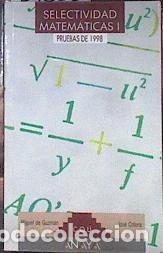 SELECTIVIDAD
MATEMÁTICAS I
PRUEBAS DE 1998
u²
√1 - u²
= 1/y + 1/f
AQ'
Miguel de Guzmán
José Cólera
ANAYA
todocoleccion